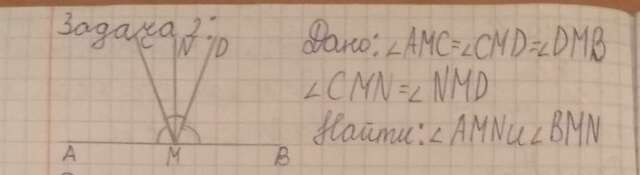 Задача 2:
C N D
Дано: ∠AMC=∠CMD=∠DMB
∠CMN=∠NMD
Найти: ∠AMN и ∠BMN
A M B